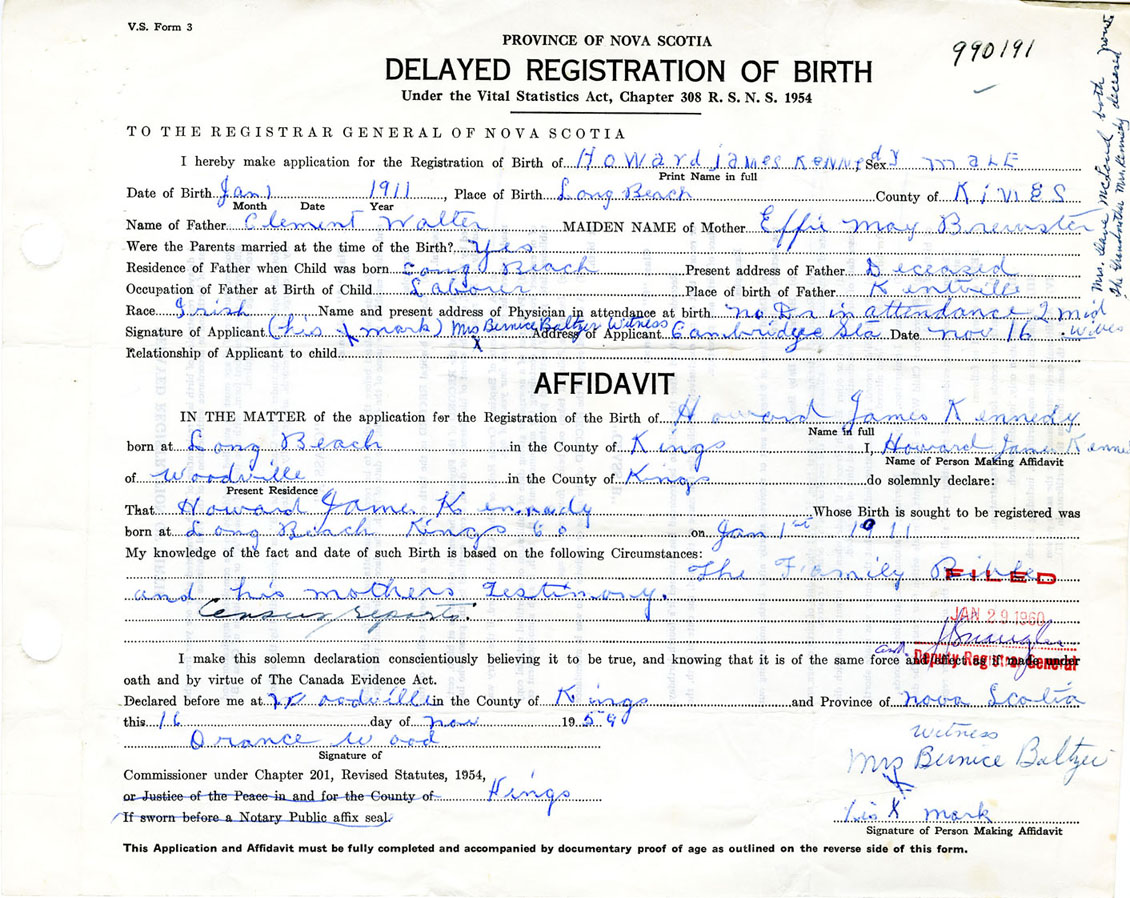 V.S. Form 3
PROVINCE OF NOVA SCOTIA
990191
DELAYED REGISTRATION OF BIRTH
Under the Vital Statistics Act, Chapter 308 R. S. N. S. 1954
TO THE REGISTRAR GENERAL OF NOVA SCOTIA
I hereby make application for the Registration of Birth of Howard James Kennedy Sex male
Print Name in full
Date of Birth Jan 1 1911, Place of Birth Long Beach County of KINGS
Month Date Year
Name of Father Clement Walter MAIDEN NAME of Mother Effie May Brewster
Were the Parents married at the time of the Birth? Yes
Residence of Father when Child was born Long Beach Present address of Father Deceased
Occupation of Father at Birth of Child Laborer Place of birth of Father Kentville
Race Irish Name and present address of Physician in attendance at birth no Dr in attendance 2 mid wives
Signature of Applicant (his X mark) Mrs Bernice Baltzer Witness Address of Applicant Cambridge Sta Date Nov 16
X
Relationship of Applicant to child
Mrs. McLeod both
the Grandmother Mrs. Kennedy deceased now
AFFIDAVIT
IN THE MATTER of the application for the Registration of the Birth of Howard James Kennedy
Name in full
born at Long Beach in the County of Kings I, Howard James Kenne
Name of Person Making Affidavit
of Woodville in the County of Kings do solemnly declare:
Present Residence
That Howard James Kennedy Whose Birth is sought to be registered was
born at Long Beach Kings Co on Jan 1st 1911
My knowledge of the fact and date of such Birth is based on the following Circumstances:
The Family Bible
FILED
and his mothers Testimony.
Census reports.
JAN 29 1960
Deputy Registrar General
I make this solemn declaration conscientiously believing it to be true, and knowing that it is of the same force and effect as if made under
oath and by virtue of The Canada Evidence Act.
Declared before me at Woodville in the County of Kings and Province of Nova Scotia
this 16 day of Nov 1959
Orance Wood
Signature of
witness
Mrs Bernice Baltzer
Commissioner under Chapter 201, Revised Statutes, 1954,
or Justice of the Peace in and for the County of Kings
If sworn before a Notary Public affix seal.
his X mark
Signature of Person Making Affidavit
This Application and Affidavit must be fully completed and accompanied by documentary proof of age as outlined on the reverse side of this form.